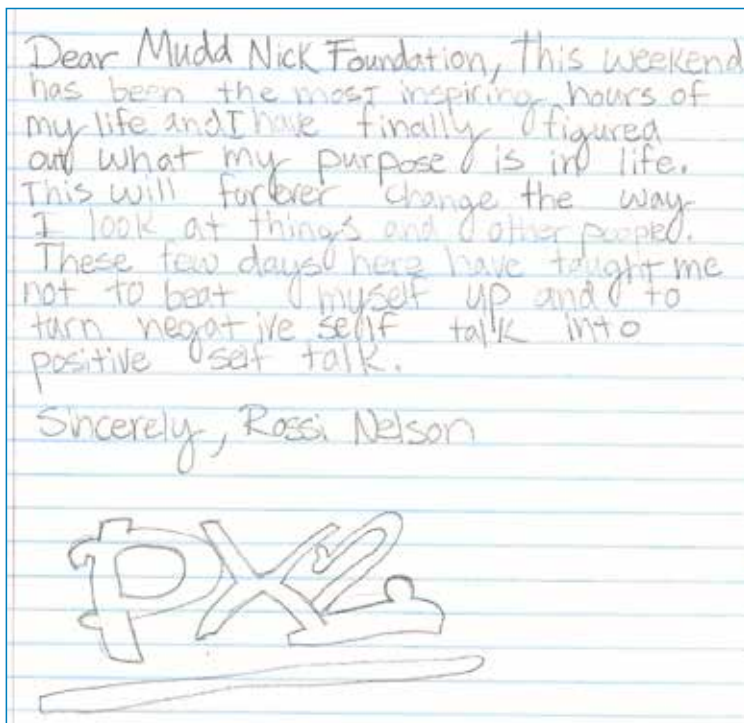 Dear Mudd Nick Foundation, This weekend
has been the most inspiring hours of
my life and I have finally figured
out what my purpose is in life.
This will forever change the way
I look at things and other people.
These few days here have taught me
not to beat myself up and to
turn negative self talk into
positive self talk.
Sincerely, Rossi Nelson
PX2